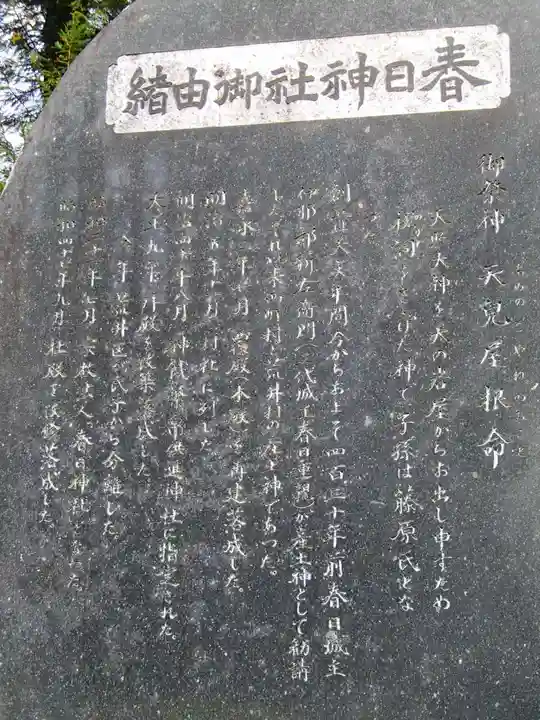 春日神社御由緒
御祭神 天児屋根命
あめのこやねのみこと
天照大神を天の岩屋からお出し申すため
祝詞をあげた神で子孫は藤原氏とな
つた
創立天文年間今からおよそ四百三十年前春日城主
伊那部新左衛門(二代城主春日重親)が産土神として勧請
荒井村の産土神であつた。
嘉永 年 月 殿(本殿)を再建落成した。
明治五年十一月村社に列した
明治四十 年八月神饌幣帛供進神社に指定された。
大正九年 拝殿を改築落成した
年荒井区 氏子から分離した
昭和二十一年七月宗教法人春日神社となつた。
昭和四十 年九月 社殿を 落成した。